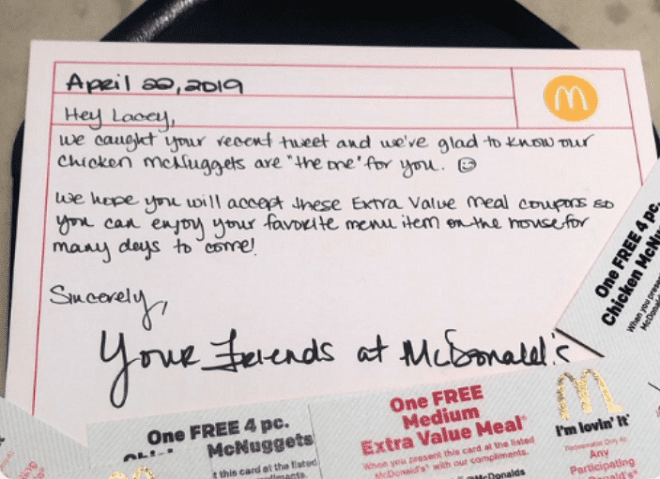 April 22, 2019
Hey Lacey,
we caught your recent tweet and we've glad to know our
chicken mcNuggets are "the one" for you.
we hope you will accept these Extra Value meal coupons so
you can enjoy your favorite menu item on the house for
many days to come!
Sincerely,
Your Friends at McDonald's
One FREE 4 pc.
Chicken McN
When you prese
McDona
One FREE 4 pc.
McNuggets
t this card at the listed
One FREE
Medium
Extra Value Meal®
When you present this card at the listed
McDonald's® with our compliments.
McDonalds
I'm lovin' it®
Redeemable Only At
Any
Participating